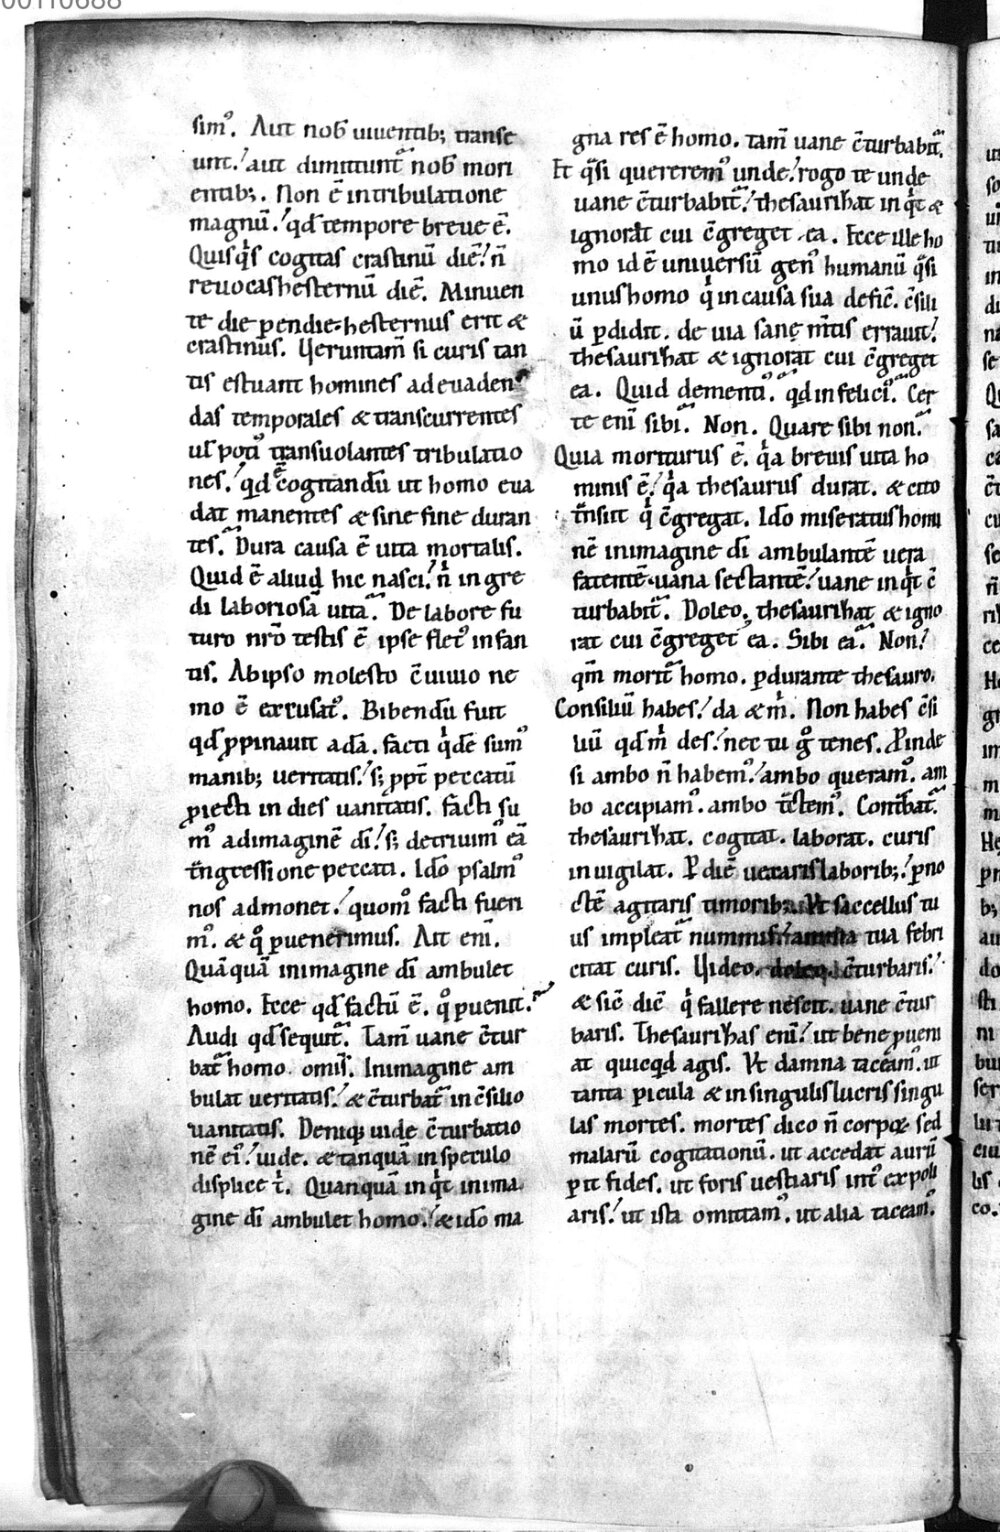 00110688
simꝰ. Aut nob̅ uiuentib; transe
unt.' aut dimittunt̅ nob̅ mori
entib;. Non ē in tribulatione
magnū.' qd̅ tempore breue ē.
Quisq̇s cogitas crastinū diē.' n̄
reuocas hesternū diē. Minuen
te die pendie hesternus erit &
crastinus. Ueruntam̄ si curis tan
tis estuant homines ad euaden
das temporales & transcurrentes
ul̄ potiꝰ transuolantes tribulatio
nes.' qd̅ ē cogitandū ut homo eua
dat manentes & sine fine duran
tes. Dura causa ē uita mortalis.
Quid ē aliud hic nasci.' n̄ ingre
di laboriosā uitā. De labore fu
turo nr̄o testis ē ipse fletꝰ infan
tis. Ab ipso molesto c̄uiuio ne
mo ē excusatꝰ. Bibendū fuit
qd̅ ꝓpinauit adā. facti q̇dē sumꝰ
manib; ueritatis.' s; ꝓpt̅ peccatū
ꝓiecti in dies uanitatis. facti su
mꝰ ad imaginē di̅.' s; detriuimꝰ eā
t̄nsgressione peccati. Id̅o psalmꝰ
nos admonet.' quom̊ facti fueri
mꝰ. & q̊ ꝑuenerimus. Ait eni̅.
Quāquā in imagine di̅ ambulet
homo. Ecce qd̅ factū ē. q̊ ꝑuenit.'
Audi qd̅ sequit̅. Tam̄ uane c̄tur
bat̅ homo omis̅. In imagine am
bulat ueritatis.' & c̄turbat̅ in c̄silio
uanitatis. Deniq; uide c̄turbatio
nē eiꝰ.' uide. & tanquā in speculo
displice t̄. Quanquā inq̇t in ima
gine di̅ ambulet homo.' & id̅o ma
gna res ē homo. tam̄ uane c̄turbabit̅.
Et q̇si quereremꝰ unde.' rogo te unde
uane c̄turbabit̅.' thesaurizat inq̇t &
ignorat cui c̄greget ea. Ecce ille ho
mo id ē uniuersū genꝰ humanū q̇si
unus homo q̇ in causa sua defic̄. c̄sili
ū ꝑdidit. de uia sane m̄tis errauit.'
thesaurizat & ignorat cui c̄greget
ea. Quid dementiꝰ. qd̅ infeliciꝰ. Cer
te eni̅ sibi. Non. Quare sibi non.
Quia moriturus ē. q̇a breuis uita ho
minis ē.' q̇a thesaurus durat. & cito
t̄nsiit q̇ c̄gregat. Id̅o miseratus homi
nē in imagine di̅ ambulantē uera
fatentē uana sectantē.' uane inq̇t c̄
turbabit̅. Doleo. thesaurizat & igno
rat cui c̄greget ea. Sibi ea. Non.'
qm̄ morit̅ homo. ꝑdurante thesauro.
Consiliū habes.' da & ṁ. Non habes c̄si
liū qd̅ ṁ des.' nec tu g̊ tenes. Proinde
si ambo n̄ habemꝰ.' ambo queramꝰ. am
bo accipiamꝰ. ambo t̄ctemꝰ. Cont̅bat̅.
thesaurizat. cogitat. laborat. curis
inuigilat. P̱ diē uexaris laborib;.' ꝑ no
ctē agitaris timorib;. Vt saccellus tu
us impleat̅ nummis.' anima tua febri
citat curis. Uideo. doleo. c̄turbaris.'
& sic̄ dic̄ q̇ fallere nescit. uane c̄tur
baris. Thesaurizas eni̅.' ut bene ꝓueni
at quicq̇d agis. Vt damna taceamꝰ. ut
tanta ꝑicula & in singulis lucris singu
las mortes. mortes dico n̄ corpoꝝ sed
malarū cogitationū. ut accedat aurū
ꝑit fides. ut foris uestiaris intꝰ expoli
aris.' ut ista omittamꝰ. ut alia taceamꝰ.